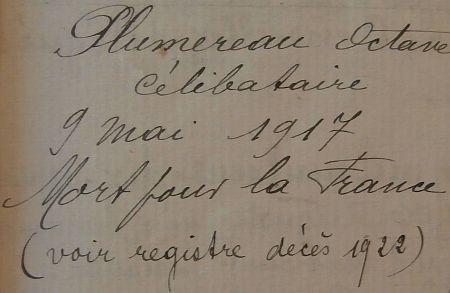 Plumereau Octave
célibataire
9 mai 1917
Mort pour la France
(voir registre décès 1922)